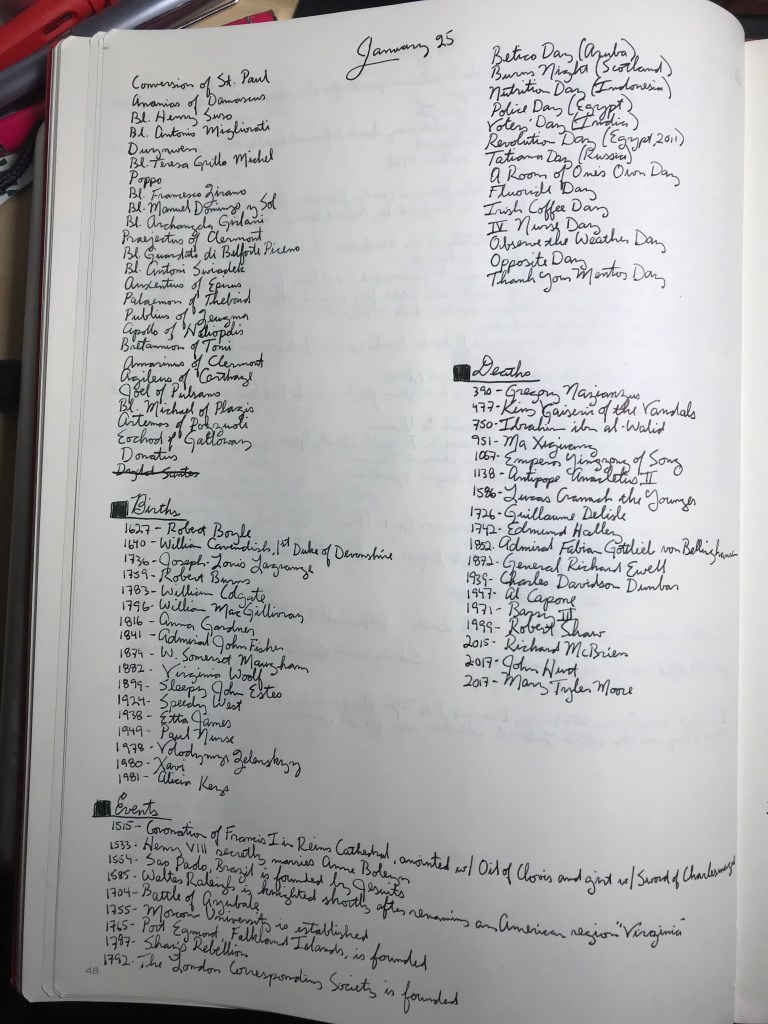 January 25
Conversion of St. Paul
Ananias of Damascus
Bl. Henry Suso
Bl. Antonio Migliorati
Dwynwen
Bl. Teresa Grillo Michel
Poppo
Bl. Francesco Zirano
Bl. Manuel Domingo y Sol
Bl. Archangela Girlani
Praejectus of Clermont
Bl. Guardato di Belforte Piceno
Bl. Antoni Swiadek
Auxentius of Epirus
Palaemon of Thebaid
Publius of Zeugma
Apollo of Heliopolis
Bretannion of Tomi
Amarinus of Clermont
Agileus of Carthage
Joel of Pulsano
Bl. Michael of Plazis
Artemas of Pozzuoli
Eochod of Galloway
Donatus
Betico Day (Aruba)
Burns Night (Scotland)
Nutrition Day (Indonesia)
Police Day (Egypt)
Voters' Day (India)
Revolution Day (Egypt, 2011)
Tatiana Day (Russia)
A Room of One's Own Day
Fluoride Day
Irish Coffee Day
IV Nurse Day
Observe the Weather Day
Opposite Day
Thank Your Mentor Day
Births
1627- Robert Boyle
1640- William Cavendish, 1st Duke of Devonshire
1736- Joseph-Louis Lagrange
1759- Robert Burns
1783- William Colgate
1796- William MacGillivray
1816- Anna Gardner
1841- Admiral John Fisher
1874- W. Somerset Maugham
1882- Virginia Woolf
1899- Sleepy John Estes
1924- Speedy West
1938- Etta James
1949- Paul Nurse
1978- Volodymyr Zelenskyy
1980- Xavi
1981- Alicia Keys
Deaths
390- Gregory Nazianzus
477- King Gaiseric of the Vandals
750- Ibrahim ibn al-Walid
951- Ma Xiguang
1067- Emperor Yingzong of Song
1138- Antipope Anacletus II
1586- Lucas Cranach the Younger
1726- Guillaume Delisle
1742- Edmund Halley
1852- Admiral Fabian Gottlieb von Bellingshausen
1872- General Richard Ewell
1939- Charles Davidson Dunbar
1947- Al Capone
1971- Barry III
1999- Robert Shaw
2015- Richard McBrien
2017- John Hurt
2017- Mary Tyler Moore
Events
1515- Coronation of Francis I in Reims Cathedral, anointed w/ Oil of Clovis and girt w/ Sword of Charlemagne
1533- Henry VIII secretly marries Anne Boleyn
1554- Sao Paolo, Brazil is founded by Jesuits
1585- Walter Raleigh is knighted shortly after renaming an American region "Virginia"
1704- Battle of Ayubale
1755- Moscow University is established
1765- Port Egmont, Falkland Islands, is founded
1787- Shay's Rebellion
1792- The London Corresponding Society is founded
48